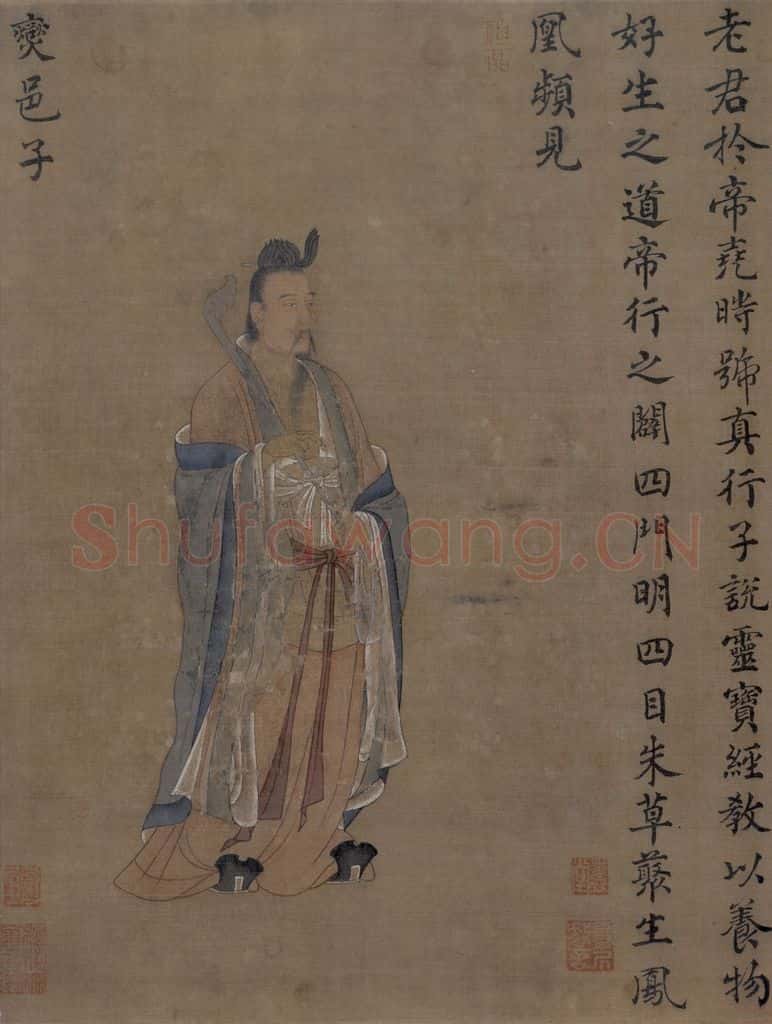 老君於帝堯時號真行子說靈寶經教以養物
好生之道帝行之闢四門明四目朱草叢生鳳
凰頻見
燮邑子
Shufawang.CN